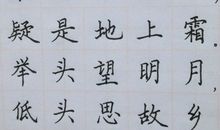 疑是地上霜.
举头望明月,
低头思故乡